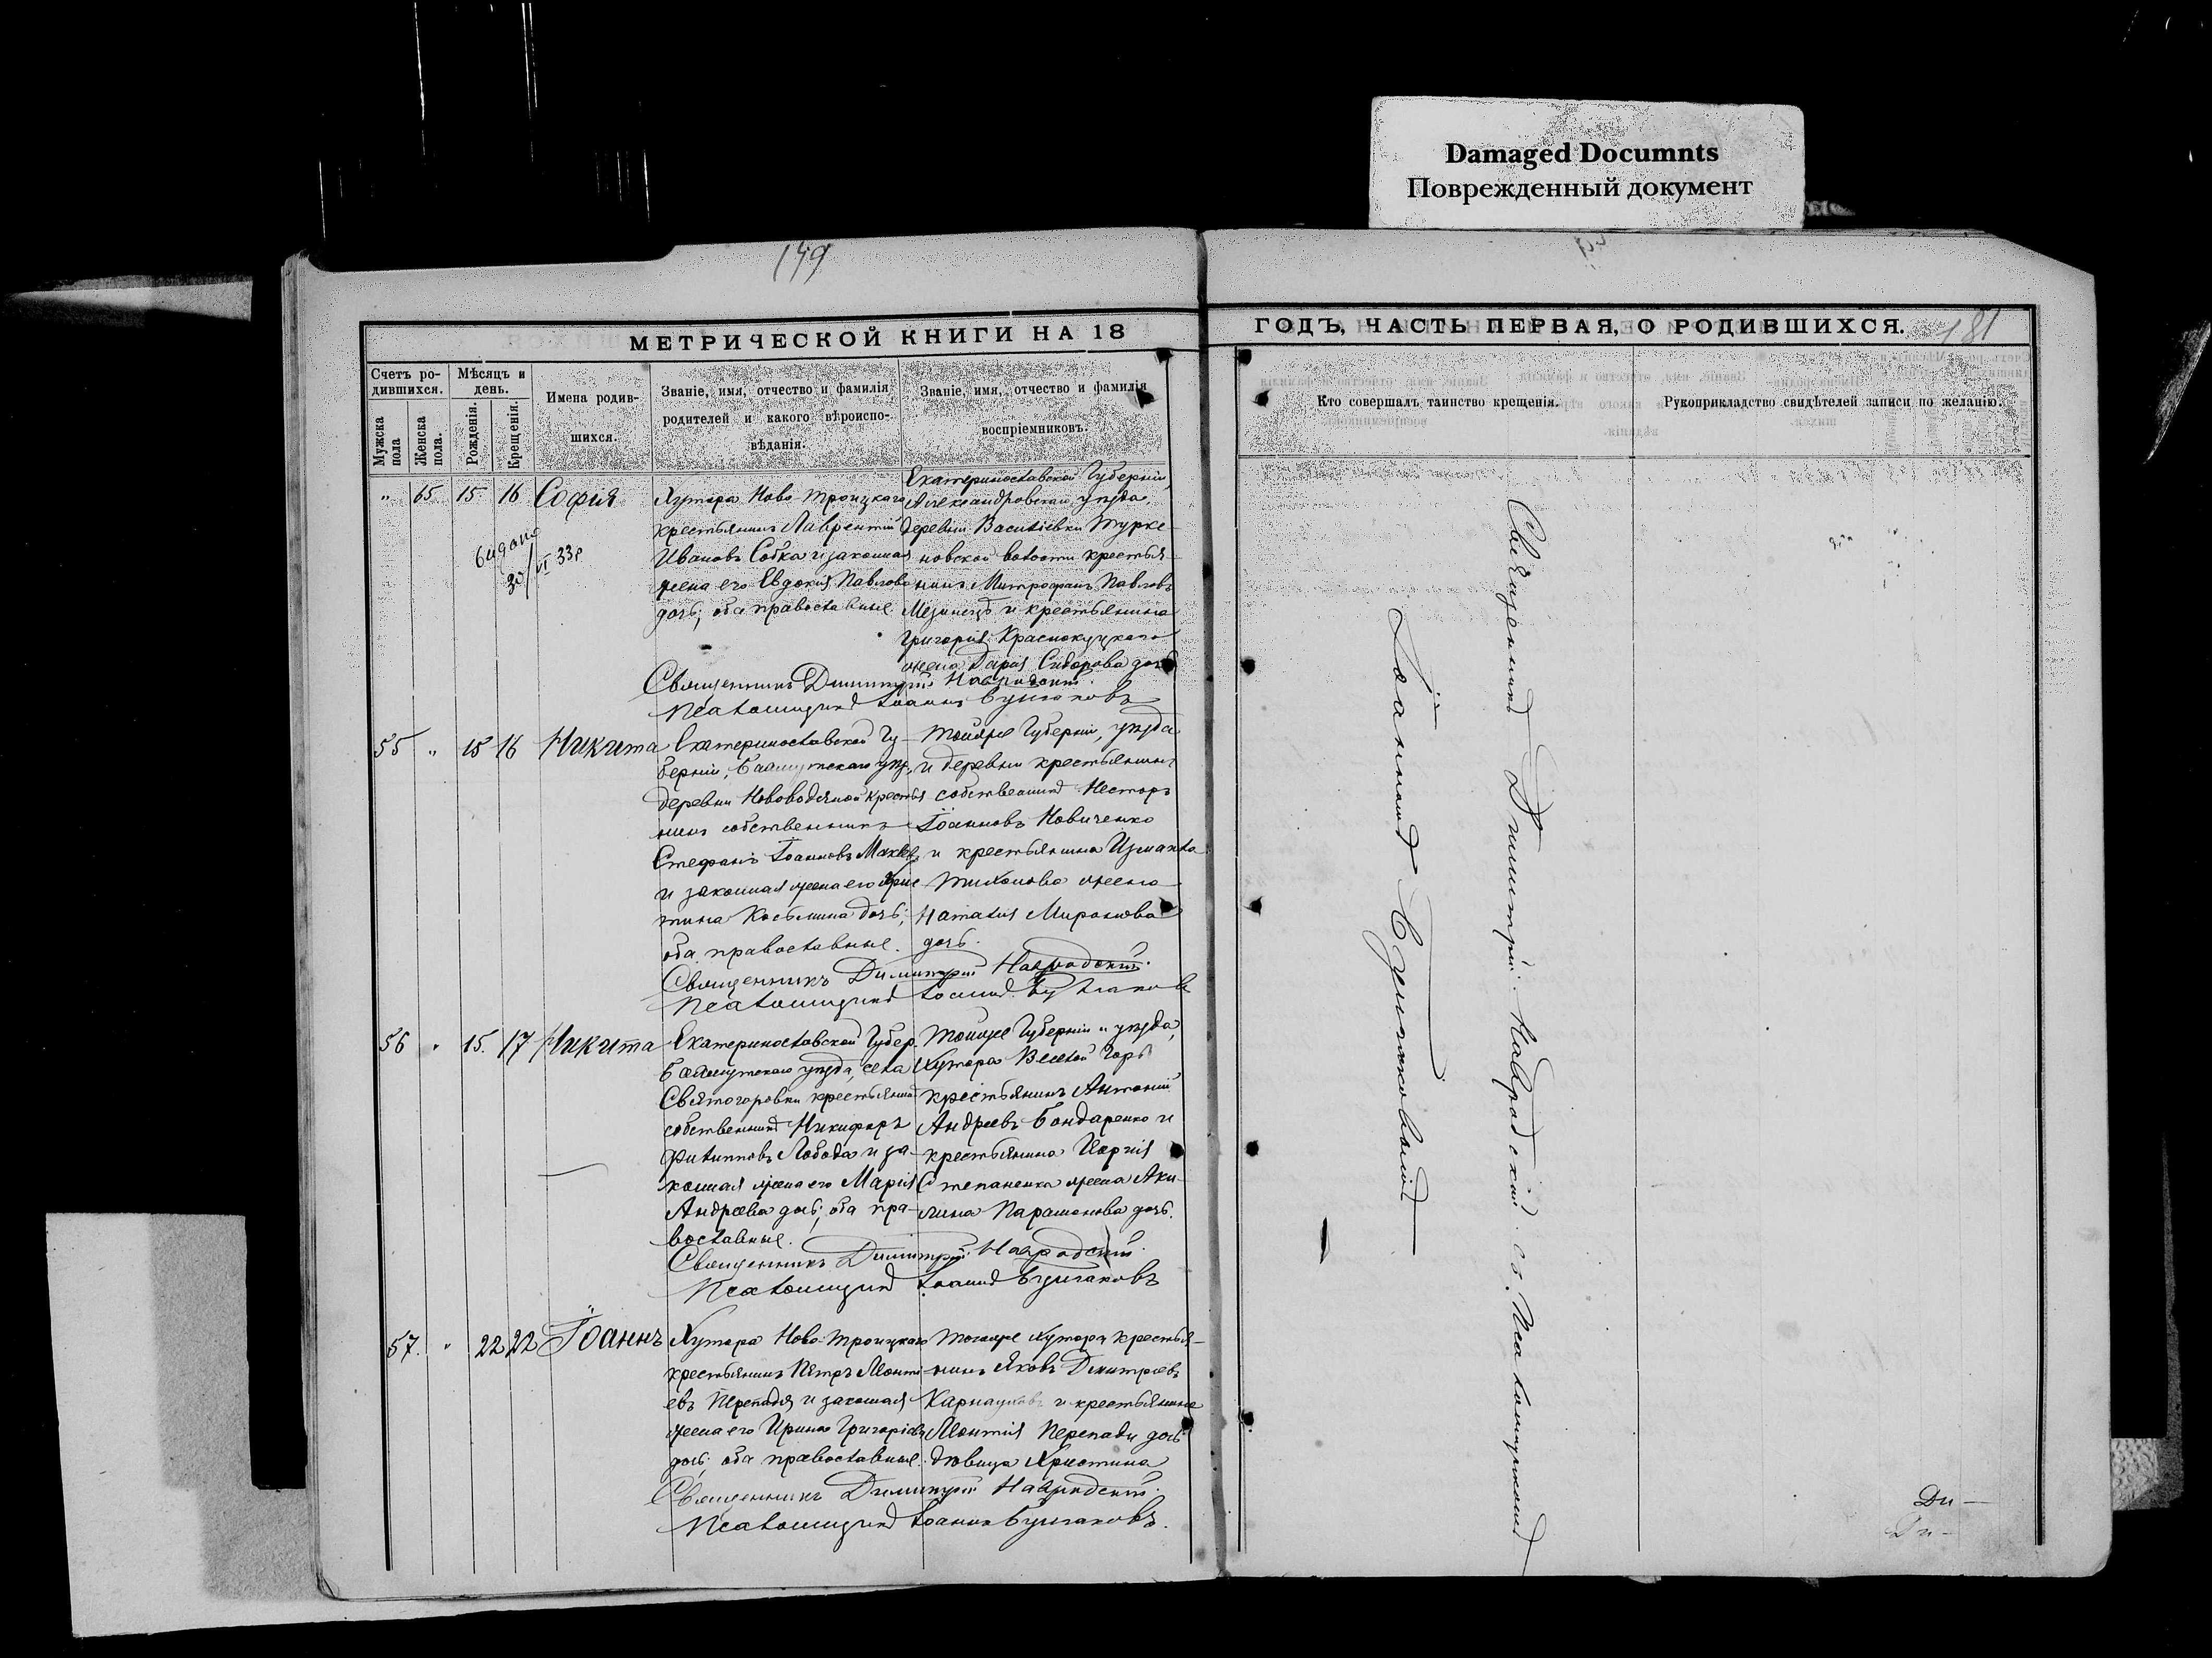 Damaged Documnts
Поврежденный документ
149
181
МЕТРИЧЕСКОЙ КНИГИ НА 18
ГОДЪ, ЧАСТЬ ПЕРВАЯ, О РОДИВШИХСЯ.
Счетъ ро-
дившихся.
Мужска
пола
Женска
пола.
Мѣсяцъ и
день.
Рожденія.
Крещенія.
Имена родив-
шихся.
Званіе, имя, отчество и фамилія
родителей и какого вѣроиспо-
вѣданія.
Званіе, имя, отчество и фамилія
воспріемниковъ.
Кто совершалъ таинство крещенія.
Рукоприкладство свидѣтелей записи по желанію.
" 65 15 16 Софія
видано
30/VI 33р
Хутора Ново Троицкаго
крестьянинъ Лаврентій
Ивановъ Собка и законная
жена его Евдокія Павлова
дочь; оба православные
Екатеринославской Губерніи,
Александровскаго уѣзда,
деревни Василіевки Турке-
новской волости крестья-
нинъ Митрофанъ Павловъ
Мезинецъ и крестьянина
Григорія Краснокуцкаго
жена Дарія Сидорова дочь
Священникъ Димитрій Навродскій
Псаломщикъ Іоаннъ Булгаковъ
55 " 15 16 Никита
Екатеринославской Гу-
берніи, Бахмутскаго уѣз.
деревни Нововодяной крестья
нинъ собственникъ
Стефанъ Іоанновъ
и законная жена его Хрис
тина Косьмина дочь;
оба православные.
Тойже Губерніи, уѣзда
и деревни крестьянинъ
собственникъ Несторъ
Іоанновъ Новиченко
и крестьянина Измаила
Тихонова жена
Наталія Миронова
дочь.
Священникъ Димитрій Навродскій.
Псаломщикъ Іоаннъ Булгаковъ
56 " 15. 17 Никита
Екатеринославской Губер.
Бахмутскаго уѣзда, села
Святогоровки крестьянинъ
собственникъ Никифоръ
Филипповъ Лобода и за-
конная жена его Марія
Андреева дочь; оба пра-
вославные.
Тойже Губерніи и уѣзда,
Хутора Веселой Горы
крестьянинъ Антоній
Андреевъ Бондаренко и
крестьянина Георгія
Степаненка жена Аки-
лина Парамонова дочь.
Священникъ Димитрій Навродскій.
Псаломщикъ Іоаннъ Булгаковъ
57. " 22 22 Іоаннъ
Хутора Ново-Троицкаго
крестьянинъ Петръ Леонті-
евъ Перепадя и законная
жена его Ирина Григоріева
дочь; оба православные.
Тогоже Хутора крестья-
нинъ Яковъ Димитріевъ
Карнауховъ и крестьянина
Леонтія Перепади дочь
дѣвица Христина
Священникъ Димитрій Навродскій.
Псаломщикъ Іоаннъ Булгаковъ.
Священникъ Димитрій Навродскій съ Псаломщикомъ
Іоанномъ Булгаковымъ
Ди —